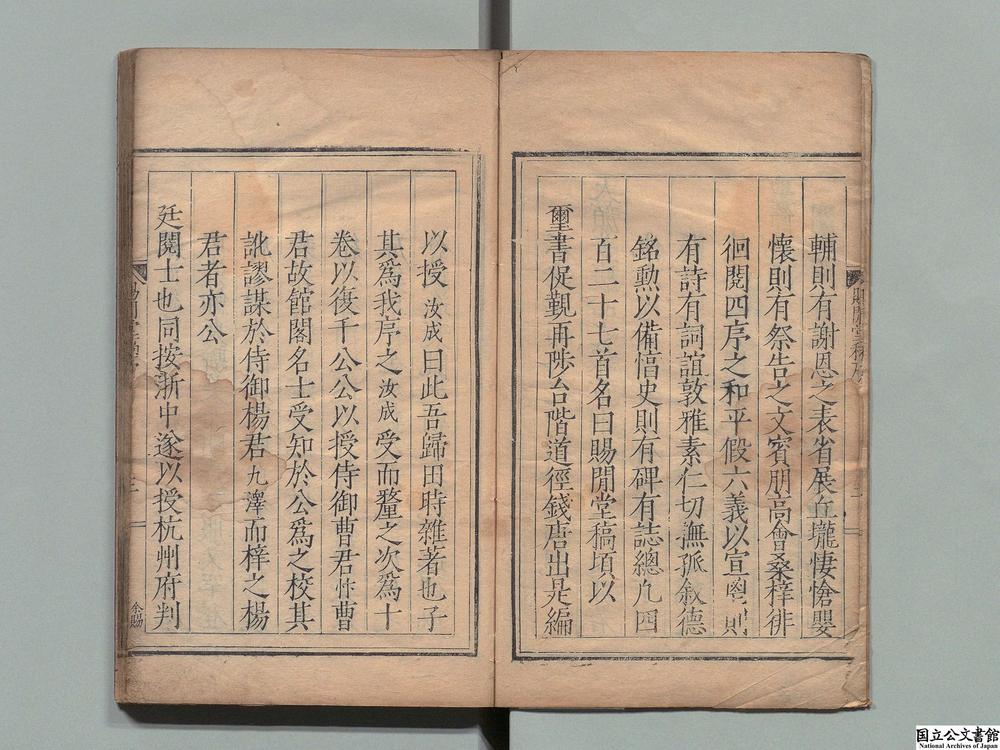 輔則有謝恩之表省展丘壠悽愴嬰
懷則有祭告之文賓朋高會桑梓徘
徊閱四序之和平假六義以宣鬯則
有詩有詞誼敦雅素仁切撫孤敘德
銘勲以備惇史則有碑有誌總凢四
百二十七首名曰賜閒堂稿頃以
璽書促覲再陟台階道徑錢唐出是編
以授汝成曰此吾歸田時雜著也子
其爲我序之汝成受而釐之次爲十
卷以復于公公以授侍御曹君忭曹
君故館閣名士受知於公爲之校其
訛謬謀於侍御楊君九澤而梓之楊
君者亦公
廷閱士也同按浙中遂以授杭州府判
余賜
国立公文書館
National Archives of Japan